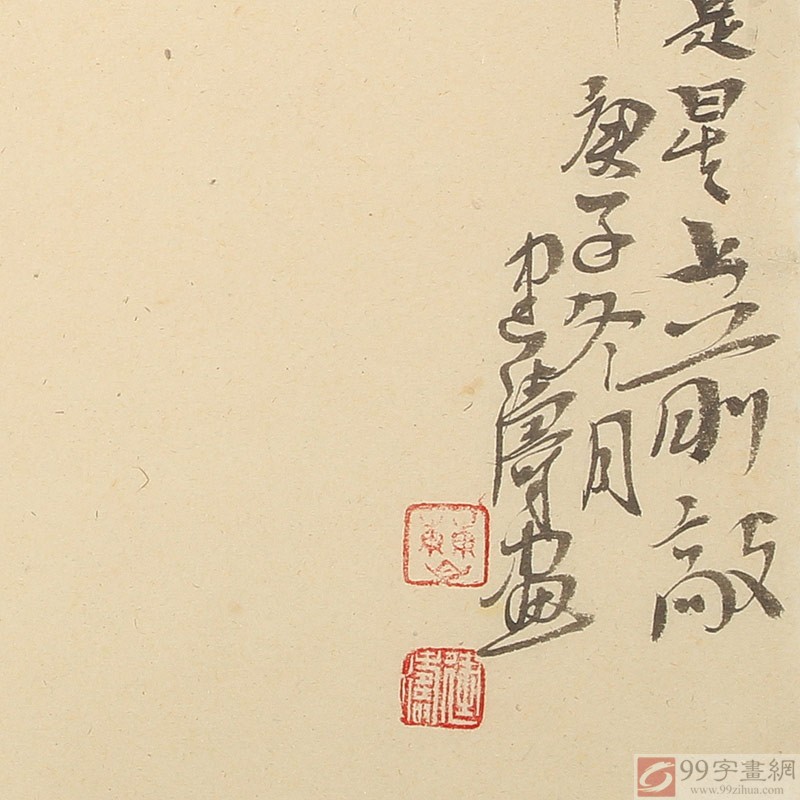 是星上前敲
庚子冬月
建濤画
99字畫網
www.99zihua.com